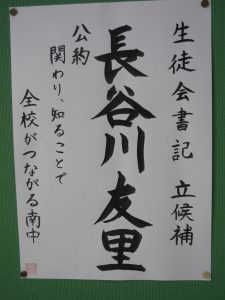 生徒会書記 立候補
長谷川友里
公約
関わり、知ることで
全校がつながる南中